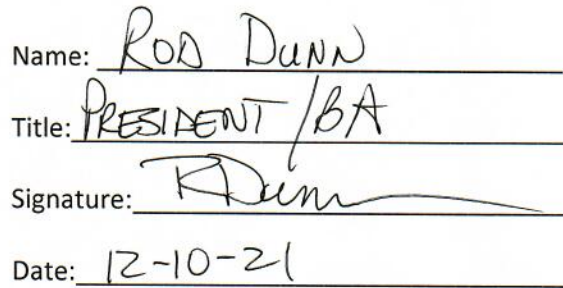 Name: ROD DUNN
Title: PRESIDENT/BA
Signature: RDunn
Date: 12-10-21